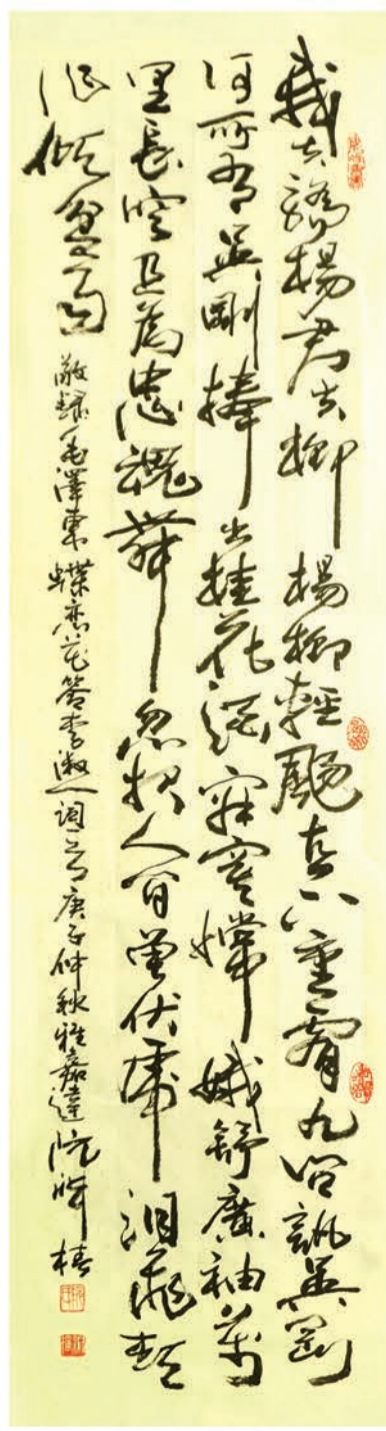 我失驕楊君失柳楊柳輕颺直上重霄九問訊吳剛
何所有吳剛捧出桂花酒寂寞嫦娥舒廣袖萬
里長空且為忠魂舞忽報人間曾伏虎淚飛頓
作傾盆雨敬録毛澤東蝶恋花答李淑一詞一首庚子仲秋雅嘉達